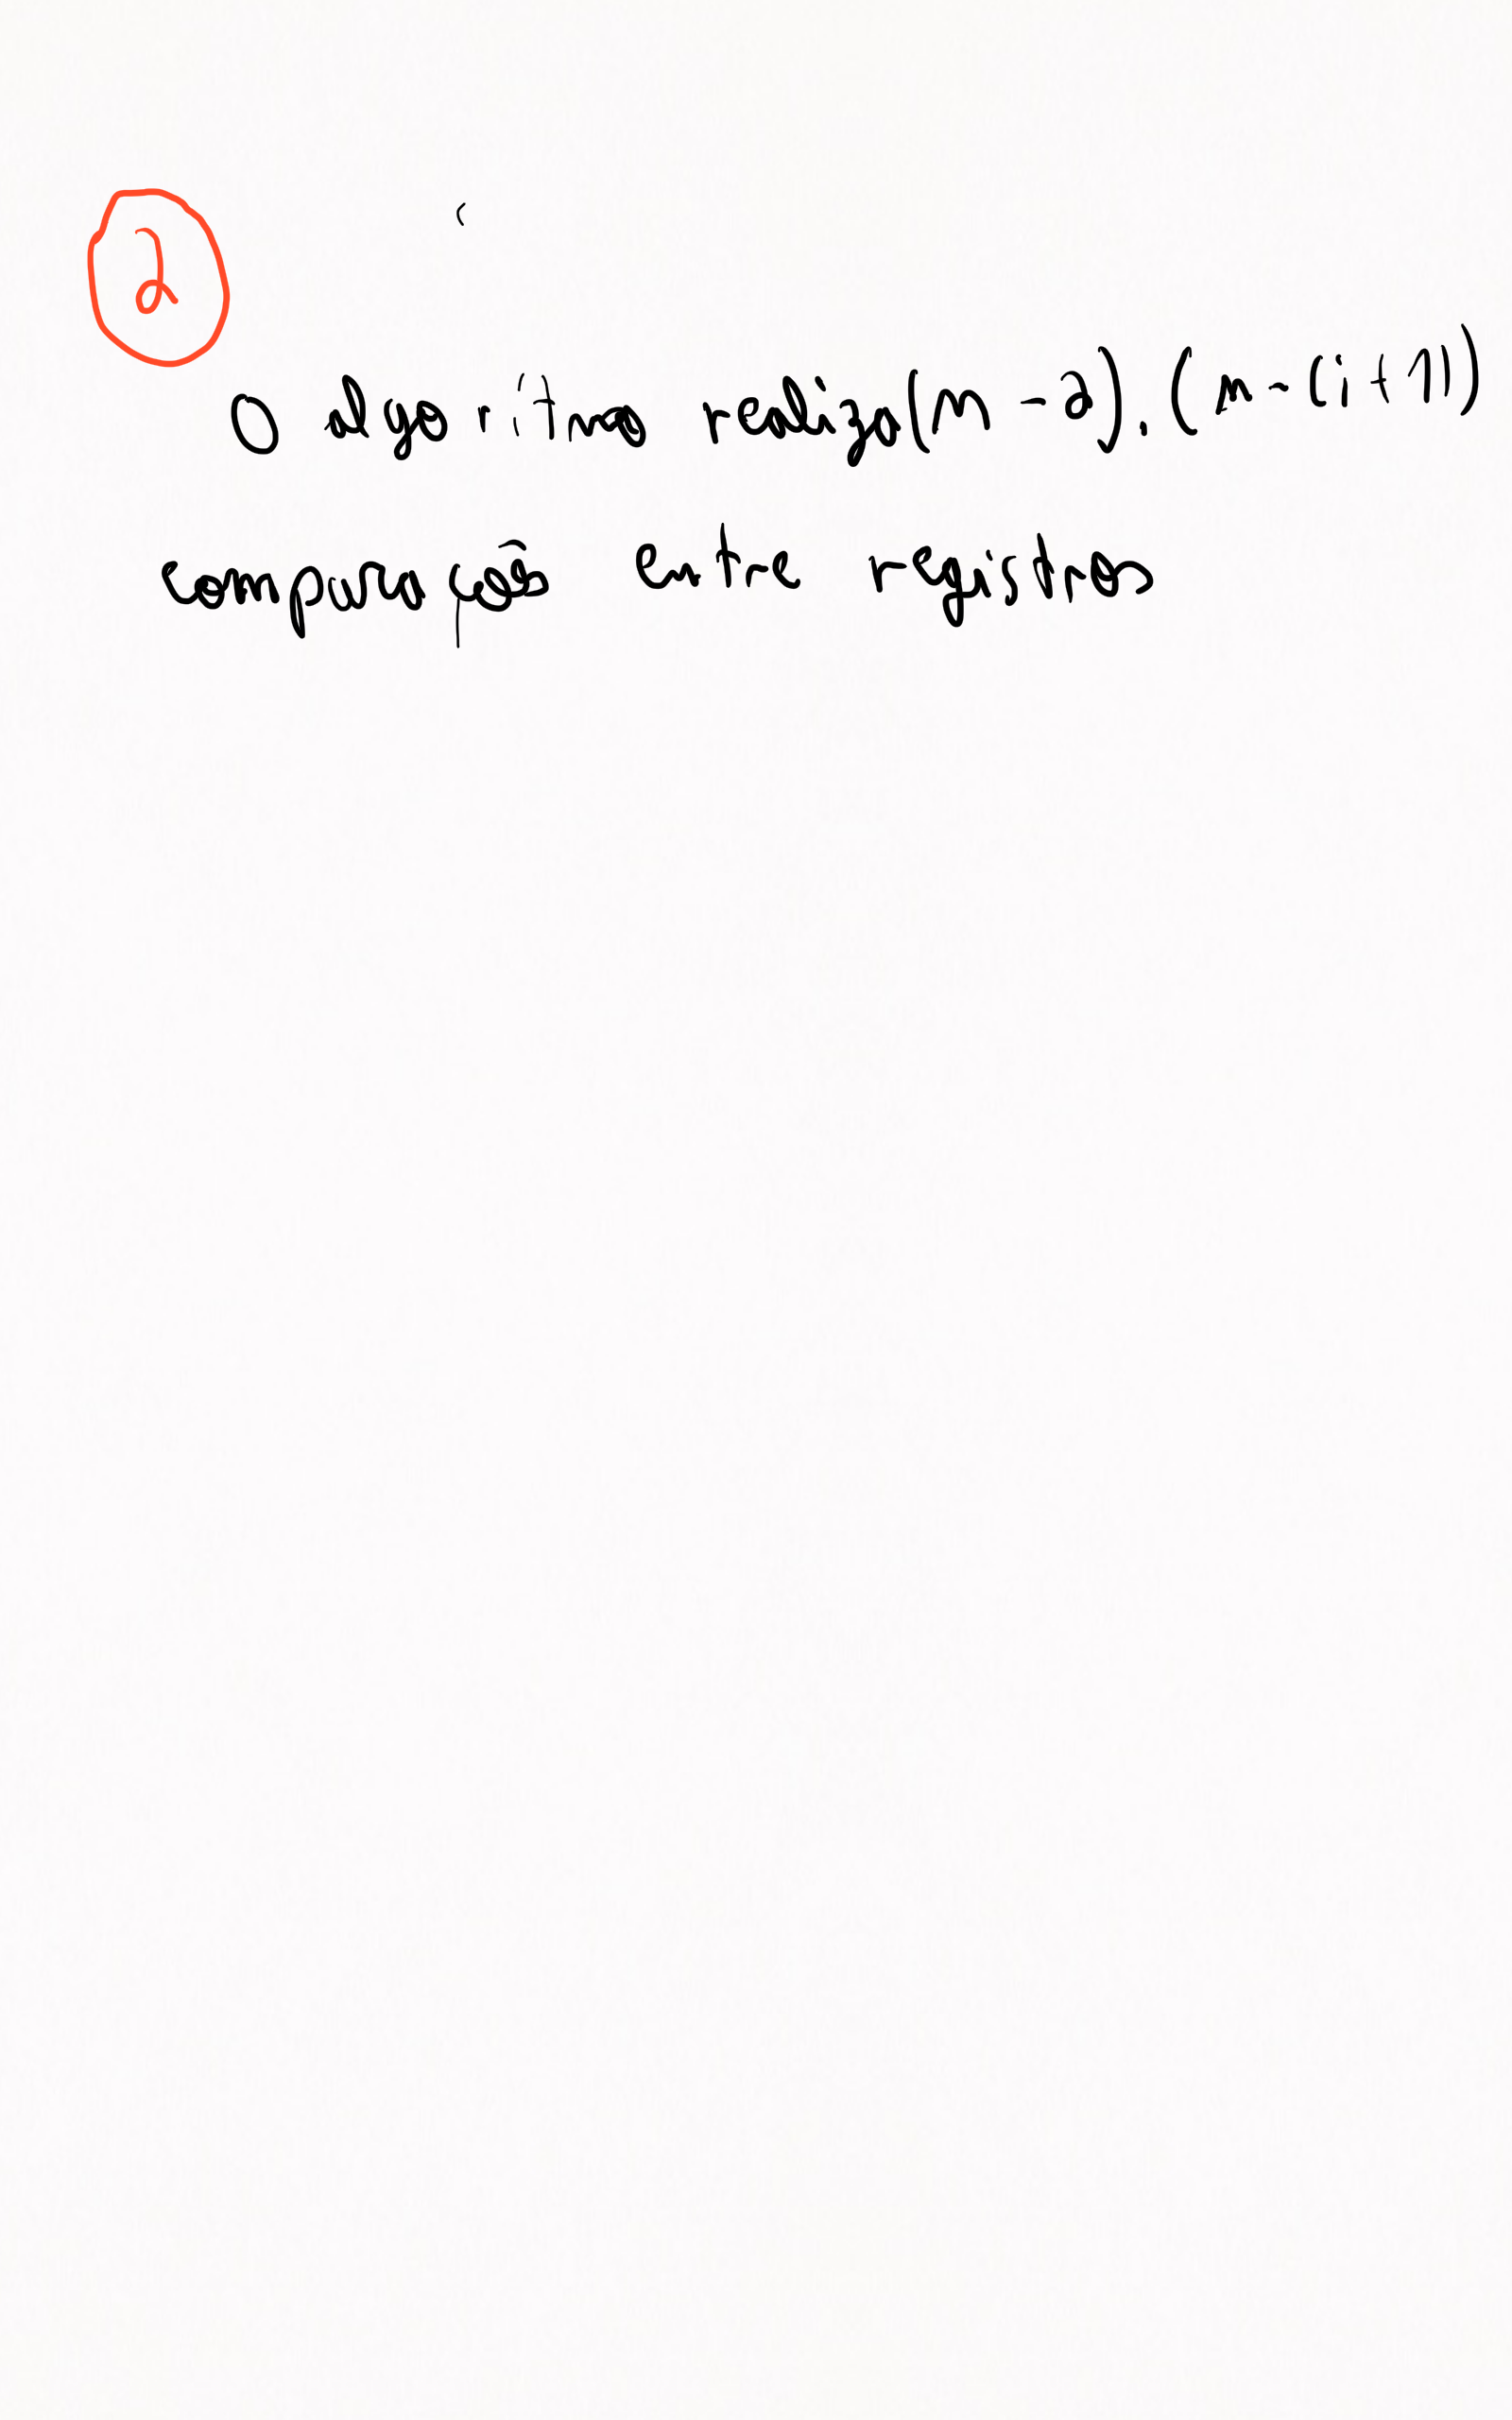 2
O algoritmo realiza (n-2).(n-(i+1))
comparações entre registros